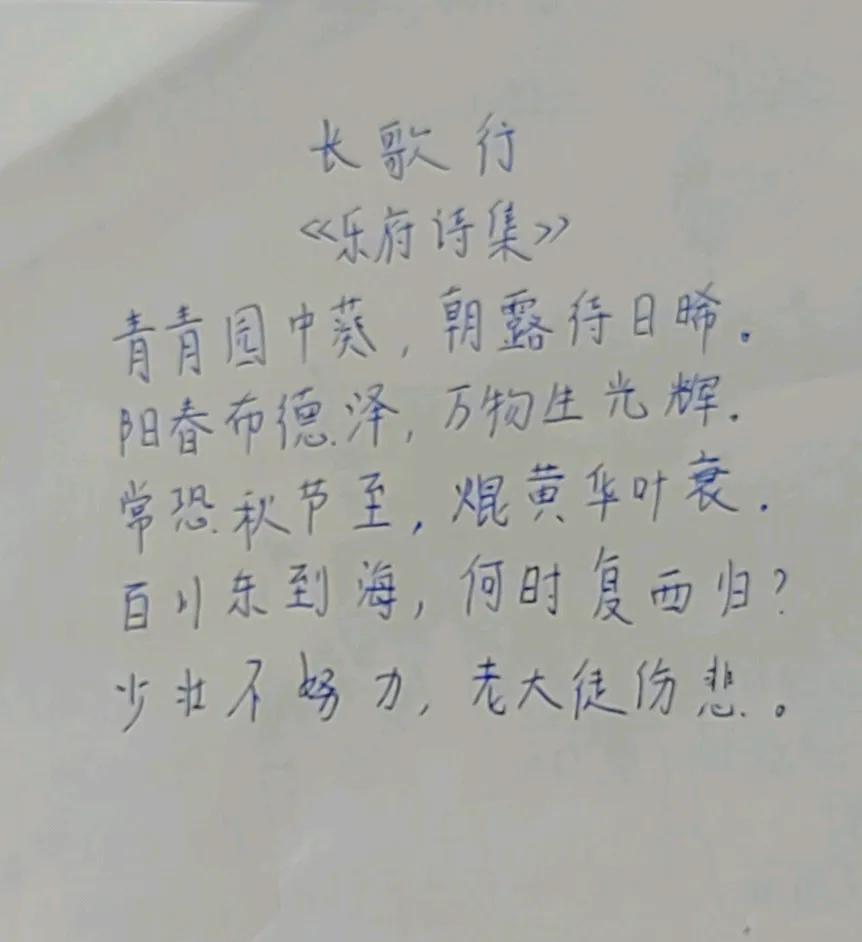 长歌行
《乐府诗集》
青青园中葵，朝露待日晞.
阳春布德泽，万物生光辉.
常恐秋节至，焜黄华叶衰.
百川东到海，何时复西归？
少壮不努力，老大徒伤悲。